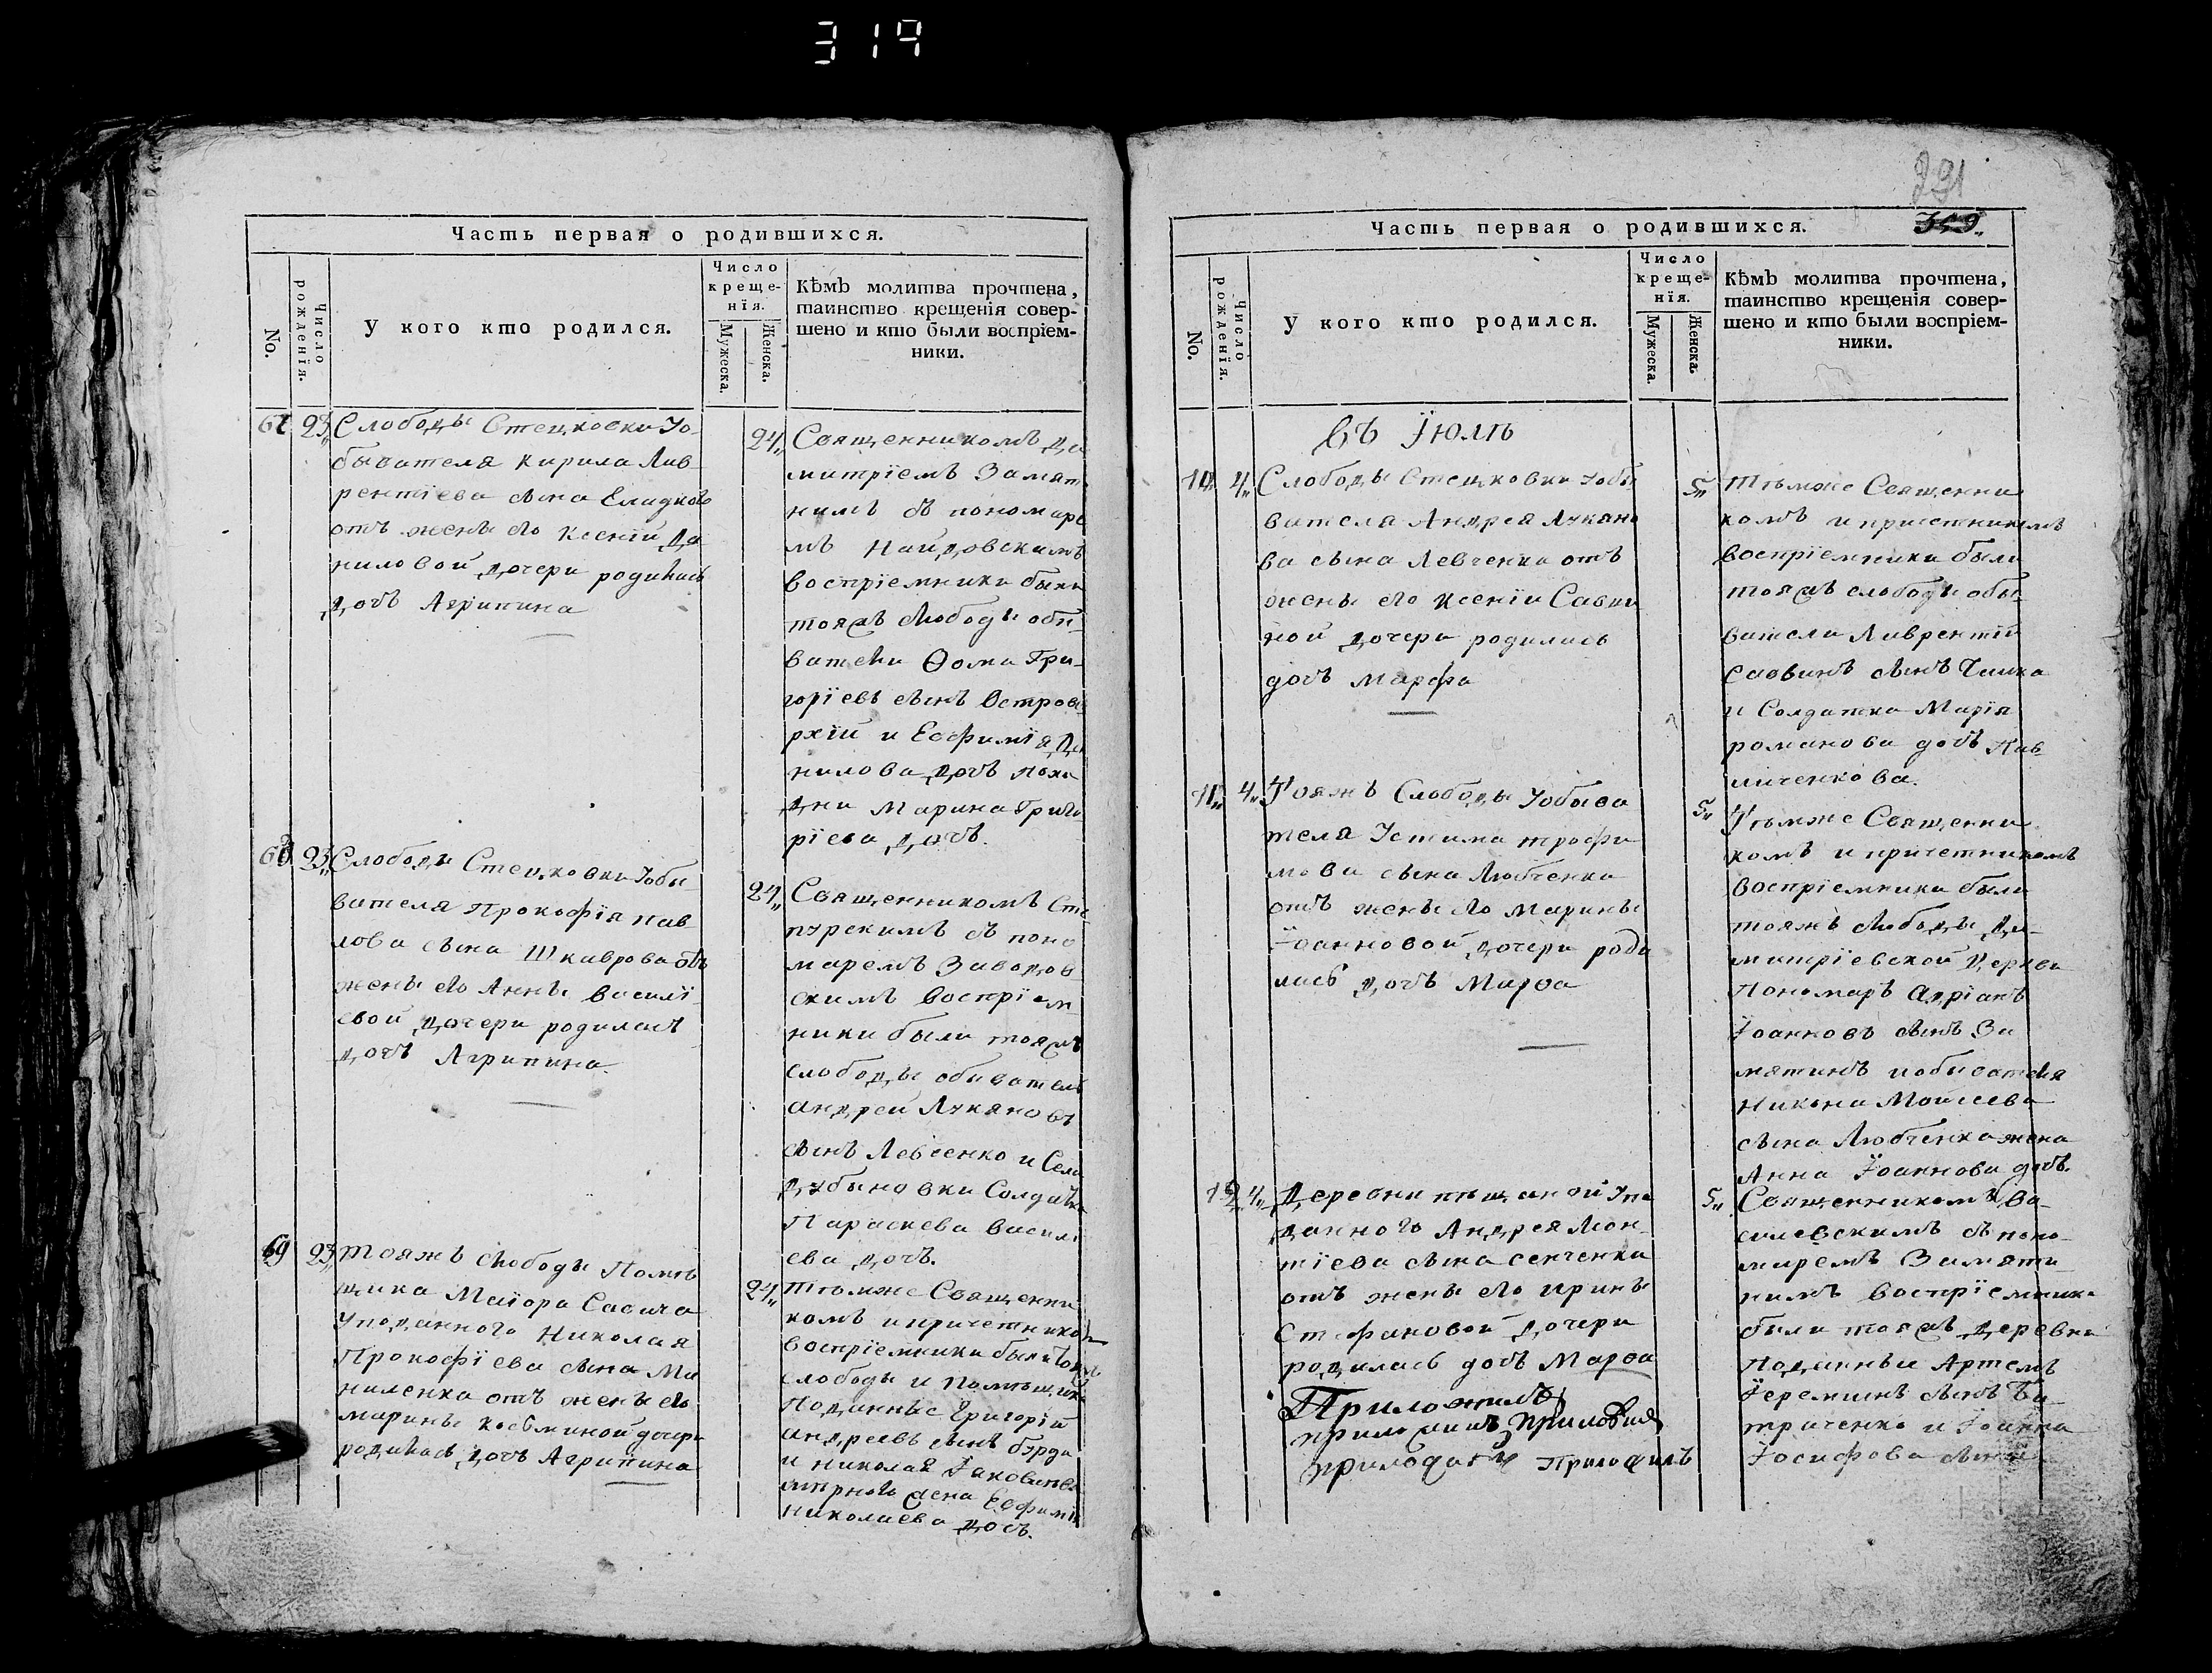 319
Часть первая о родившихся.
No.
Число рожденїя.
У кого кто родился.
Число креще-нїя.
Мужеска.
Женска.
Кѣмъ молитва прочтена,
таинство крещенїя совер-
шено и кто были восприем-
ники.
67 23„ Слободы Стецковки Уо-
бывателя Кирила Лав-
рентїева сына
отъ жены его Ксенїи Да
ниловой дочери родилась
дочь Агрипина
24„ Священникомъ Ди
митрїемъ Замят
нимъ съ пономаре
мъ
воспрїемники были
тояжъ слободы обы-
ватели Ѳома Гри-
горїевъ сынъ Остров
рхїй и Евфимїя Да
нилова дочь
Марина Григо
рїева дочь.
68 23„ Слободы Стецковки Уобы
вателя Прокофїя Пав
лова сына Шкаврова отъ
жены его Анны Василї
евой дочери родилась
дочь Агрипина.
24„ Священникомъ Сте
пурскимъ съ поно
маремъ Заводов
скимъ воспрїем
ники были тояжъ
слободы обыватель
Андрей Лукяновъ
сынъ Левченко и Села
Дубыновки Солдатка
Параскева Василї
ева дочь.
69 23„ Тояжъ слободы Помѣ
щика Маїора Савича
Уподанного Николая
Прокофїева сына Ма
ниленка отъ жены его
Марины Косьминой дочери
родилась дочь Агрипина
24„ Тѣмже Священни
комъ и причетникомъ
воспрїемники были тояжъ
слободы и помѣщика
Поданные Григорїй
Андреевъ сынъ Бурда
и Николая Іаковлева
жена Евфимїя
Николаева дочь.
291
Часть первая о родившихся.
No.
Число рожденїя.
У кого кто родился.
Число креще-нїя.
Мужеска.
Женска.
Кѣмъ молитва прочтена,
таинство крещенїя совер-
шено и кто были воспрїем-
ники.
Въ Їюлѣ
70 4„ Слободы Стецковки Уобы
вателя Андрея Лукяно
ва сына Левченка отъ
жены его Ксенїи Савви
ной дочери родилась
дочь Марфа
5„ Тѣмже Священни
комъ и причетникомъ
воспрїемники были
тояжъ слободы обы-
ватели Лаврентїй
Саввинъ сынъ Чайка
и Солдатка Марїя
Романова дочь Пав
личенкова.
71„ 4„ Тояжъ Слободы Уобыва
теля Устима Трофи
мова сына Любченка
отъ жены его Марины
Їоанновой дочери роди
лась дочь Марѳа
5„ Тѣмже Священни
комъ и причетникомъ
воспрїемники были
тояжъ слободы Ди-
митрїевской Церкви
Пономарь Адрїанъ
Їоанновъ сынъ За
мятинъ и обывателя
Никона Моисеева
сына Любченка жена
Анна Їоаннова дочь.
72 4„ Деревни Пѣщаной Упо
данного Андрея Леон-
тїева сына Сенченка
отъ жены его Ирины
Стефановой дочери
родилась дочь Марѳа
5„ Священникомъ Ва-
силевскимъ съ поно-
маремъ Замяти
нимъ воспрїемники
были тояжъ деревни
Поданные Артемъ
Їеремїинъ сынъ
и Їоанна
Їосифова сына
Приложилъ
приложилъ
Приложилъ